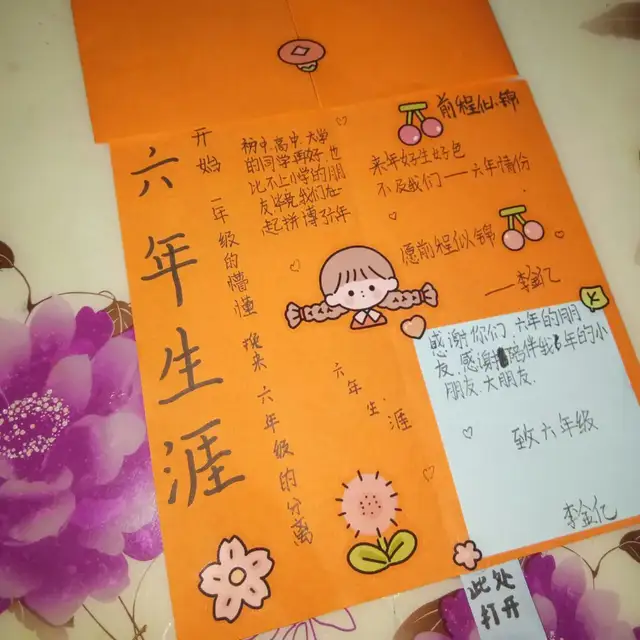 六年生涯
开始 一年级的懵懂 换来 六年级的分离
初中.高中.大学
的同学再好,也
比不上小学的朋
友毕竟我们在一
起拼博了六年
前程似锦
来年好生好色
不及我们——六年情份
愿前程似锦
——李金亿
六年生涯
感谢你们 六年的朋
友.感谢陪伴我6年的小
朋友.大朋友.
致六年级
李金亿
此处
打开